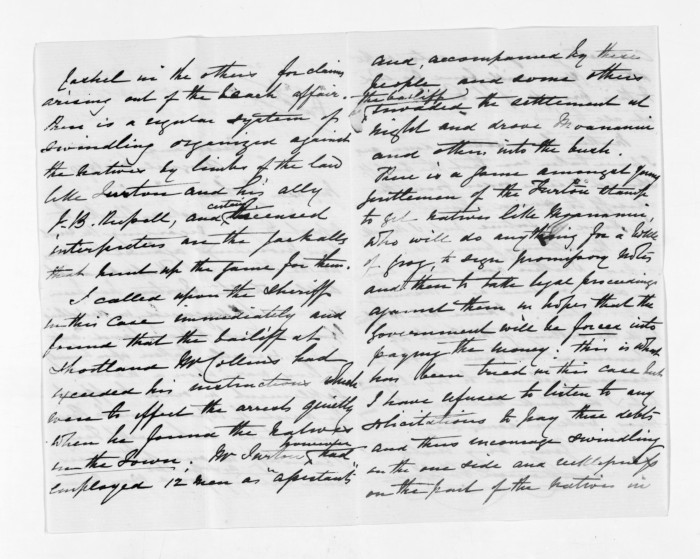 in the others for claims
arising out of the affair.
There is a regular system of
swindling organized against
the natives by limbs of the law
like and his ally
J. B. Russell, and certain licensed
interpreters are the jackalls
that hunt up the game for them.
I called upon the Sheriff
in this case immediately and
found that the bailiff at
Shortland Mr Collins had
exceeded his instructions which
were to effect the arrests quietly
when he found the natives
in the Town; Mr however had
employed 12 men as "assistants"
and, accompanied by these
people and some others
the bailiff invaded the settlement at
night and drove
and others into the bush.
There is a game amongst young
gentlemen of the stamp
to get natives like
who will do anything for a bottle
of grog, to sign promissory notes
and then to take legal proceedings
against them in hopes that the
Government will be forced into
paying the money: this is what
has been tried in this case but
I have refused to listen to any
solicitations to pay these debts
and thus encourage swindling
on the one side and
on the part of the natives in